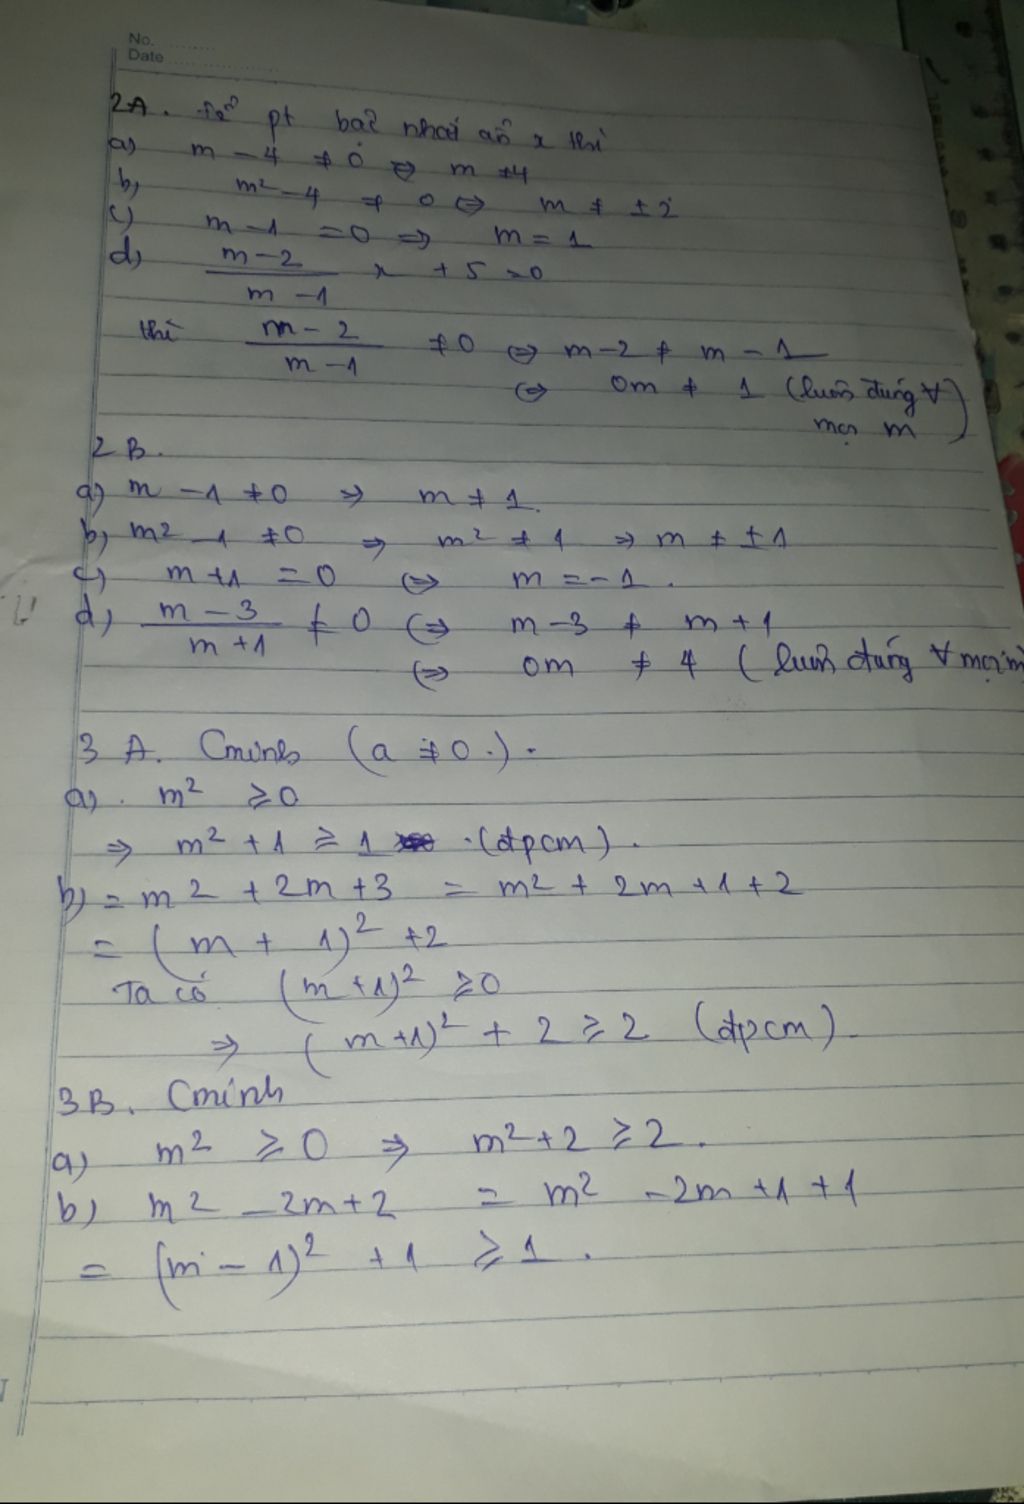 No. ........
Date ....................
2A. Để pt bậc nhất ẩn x thì
a) m - 4 ≠ 0 ⇔ m ≠ 4
b) m² - 4 ≠ 0 ⇔ m ≠ ± 2
c) m - 1 = 0 ⇒ m = 1
d) (m - 2)/(m - 1) x + 5 = 0
thì (m - 2)/(m - 1) ≠ 0 ⇔ m - 2 ≠ m - 1
⇔ 0m ≠ 1 (luôn đúng ∀
mọi m)
2B.
a) m - 1 ≠ 0 ⇒ m ≠ 1.
b) m² - 1 ≠ 0 ⇒ m² ≠ 1 ⇒ m ≠ ± 1
c) m + 1 = 0 ⇔ m = - 1.
d) (m - 3)/(m + 1) ≠ 0 ⇔ m - 3 ≠ m + 1
⇔ 0m ≠ 4 (luôn đúng ∀ mọi m
3A. Cminh (a ≠ 0.).
a). m² ≥ 0
⇒ m² + 1 ≥ 1 .(đpcm).
b) = m² + 2m + 3 = m² + 2m + 1 + 2
= (m + 1)² + 2
Ta có (m + 1)² ≥ 0
⇒ (m + 1)² + 2 ≥ 2 (đpcm).
3B. Cminh
a) m² ≥ 0 ⇒ m² + 2 ≥ 2.
b) m² - 2m + 2 = m² - 2m + 1 + 1
= (m - 1)² + 1 ≥ 1.